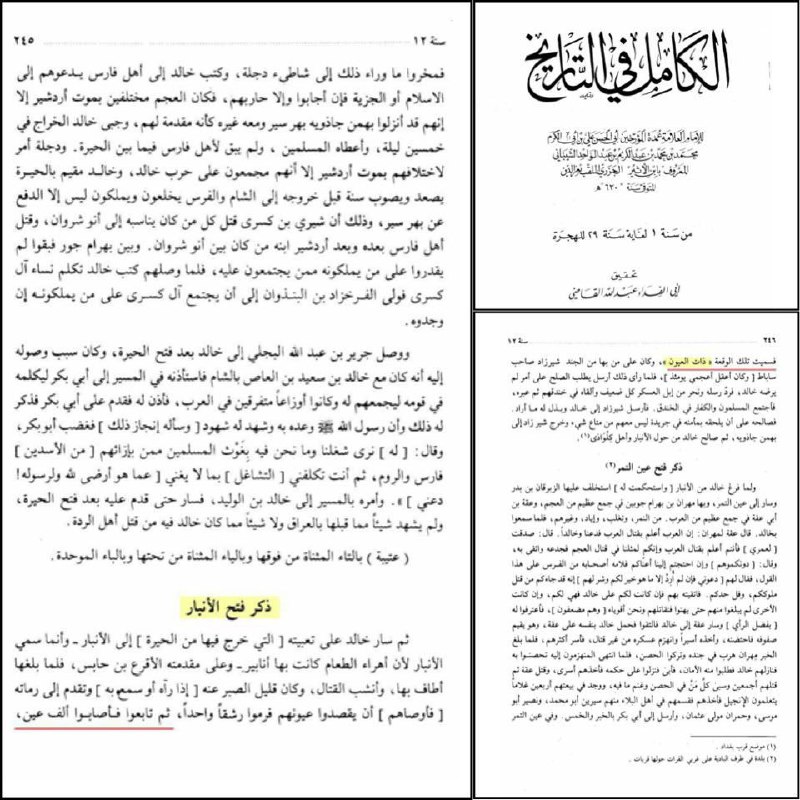 سنة ١٢ ٢٤٥
فمخروا ما وراء ذلك إلى شاطىء دجلة، وكتب خالد إلى أهل فارس يدعوهم إلى
الاسلام أو الجزية فإن أجابوا وإلا حاربهم، فكان العجم مختلفين بموت أردشير إلا
إنهم قد أنزلوا بهمن جاذويه بهر سير ومعه غيره كأنه مقدمة لهم، وجبى خالد الخراج في
خمسين ليلة، وأعطاه المسلمين ، ولم يبق لأهل فارس فيما بين الحيرة. ودجلة أمر
لاختلافهم بموت أردشير إلا أنهم مجمعون على حرب خالد، وخالد مقيم بالحيرة
يصعد ويصوب سنة قبل خروجه إلى الشام والفرس يخلعون ويملكون ليس إلا الدفع
عن بهر سير، وذلك أن شيري بن كسرى قتل كل من كان يناسبه إلى أنو شروان، وقتل
أهل فارس بعده وبعد أردشير ابنه من كان بين أنو شروان. وبين بهرام جور فبقوا لم
يقدروا على من يملكونه ممن يجتمعون عليه، فلما وصلهم كتب خالد تكلم نساء آل
كسرى فولى الفرخزاد بن البنذوان إلى أن يجتمع آل كسرى على من يملكونه إن
وجدوه.
ووصل جرير بن عبد الله البجلي إلى خالد بعد فتح الحيرة، وكان سبب وصوله
إليه أنه كان مع خالد بن سعيد بن العاص بالشام فاستأذنه في المسير إلى أبي بكر ليكلمه
في قومه ليجمعهم له وكانوا أوزاعاً متفرقين في العرب، فأذن له فقدم على أبي بكر فذكر
له ذلك وأن رسول الله ﷺ وعده به وشهد له شهود [ وسأله إنجاز ذلك ] فغضب أبو بكر،
وقال: [ له ] نرى شغلنا وما نحن فيه بِغَوْث المسلمين ممن بإزائهم [ من الأسدين ]
فارس والروم، ثم أنت تكلفني [ التشاغل ] بما لا يغني [ عما هو أرضى لله ولرسوله!
دعني ] ». وأمره بالمسير إلى خالد بن الوليد، فسار حتى قدم عليه بعد فتح الحيرة،
ولم يشهد شيئاً مما قبلها بالعراق ولا شيئاً مما كان خالد فيه من قتل أهل الردة.
( عتيبة ) بالتاء المثناة من فوقها وبالياء المثناة من تحتها وبالباء الموحدة.
ذكر فتح الأنبار
ثم سار خالد على تعبيته [ التي خرج فيها من الحيرة ] إلى الأنبار ـ وأنما سمي
الأنبار لأن أهراء الطعام كانت بها أنابير ـ وعلى مقدمته الأقرع بن حابس، فلما بلغها
أطاف بها، وأنشب القتال، وكان قليل الصبر عنه [ إذا رآه أو سمع به ] وتقدم إلى رماته
[ فأوصاهم ] أن يقصدوا عيونهم فرموا رشقاً واحداً، ثم تابعوا فأصابوا ألف عين،
الكامل في التاريخ
للإمام العلامة عمدة المؤرخين أبي الحسن علي بن أبي الكرم
محمد بن محمد بن عبد الكريم بن عبد الواحد الشيباني
المعروف بابن الأثير الجزري الملقب بعز الدين
المتوفى سنة ٦٣٠ هـ
من سنة ١ لغاية سنة ٢٩ للهجرة
تحقيق
أبي الفداء عبد الله القاضي
٢٤٦ سنة ١٢
فسميت تلك الوقعة « ذات العيون »، وكان على من بها من الجند شيرزاد صاحب
ساباط [ وكان أعقل أعجمي يومئذ ]، فلما رأى ذلك أرسل يطلب الصلح على أمر لم
يرضه خالد، فرد رسله ونحر من إبل العسكر كل ضعيف وألقاه في خندقهم ثم عبره،
فأجتمع المسلمون والكفار في الخندق. فأرسل شيرزاد إلى خالد وبذل له ما أراد.
فصالحه على أن يلحقه بمأمنه في جريدة ليس معهم من متاع شيء، وخرج شير زاد إلى
بهمن جاذويه، ثم صالح خالد من حول الأنبار وأهل كلواذى (١).
ذكر فتح عين التمر (٢)
ولما فرغ خالد من الأنبار [ واستحكمت له ] استخلف عليها الزبرقان بن بدر
وسار إلى عين التمر، وبها مهران بن بهرام جوبين في جمع عظيم من العجم، وعقة بن
أبي عقة في جمع عظيم من العرب. من النمر، وتغلب، وإياد، وغيرهم، فلما سمعوا
بخالد. قال عقة لمهران: إن العرب أعلم بقتال العرب فدعنا وخالداً. قال: صدقت
[ لعمري ] فأنتم أعلم بقتال العرب وإنكم لمثلنا في قتال العجم فخدعه واتقى به،
وقال: [ دونكموهم ] وإن احتجتم إلينا أعناكم فلامه أصحابه من الفرس على هذا
القول، فقال لهم [ دعوني فإني لم أُرد إلا ما هو خير لكم وشر لهم ] إنه قد جاءكم من قتل
ملوككم، وفل حدكم. فاتقيته بهم فإن كانت لكم على خالد فهي لكم، وإن كانت
الأخرى لم يبلغوا منهم حتى يهنوا فنقاتلهم ونحن أقوياء [ وهم مضعفون ]، فأعترفوا له
[ بفضل الرأي ] وسار عقة إلى خالد فالتقوا فحمل خالد بنفسه على عقة، وهو يقيم
صفوفه فاحتضنه، وأخذه أسيراً وانهزم عسكره من غير قتال، فأسر أكثرهم. فلما بلغ
الخبر مهران هرب في جنده وتركوا الحصن، فلما انتهى المنهزمون إليه تحصنوا به
فنازلهم خالد فطلبوا منه الأمان، فأبى فنزلوا على حكمه فأخذهم أسرى، وقتل عقة ثم
قتلهم أجمعين وسبى كل من في الحصن وغنم ما فيه، ووجد في بيعتهم أربعين غلاماً
يتعلمون الإنجيل فأخذهم فقسمهم في أهل البلاء منهم سيرين أبو محمد، ونصير أبو
موسى، وحمران مولى عثمان، وأرسل إلى أبي بكر بالخبر والخمس. وفي عين التمر
(١) موضع قرب بغداد.
(٢) بلدة في طرف البادية على غربي الفرات حولها قريات.